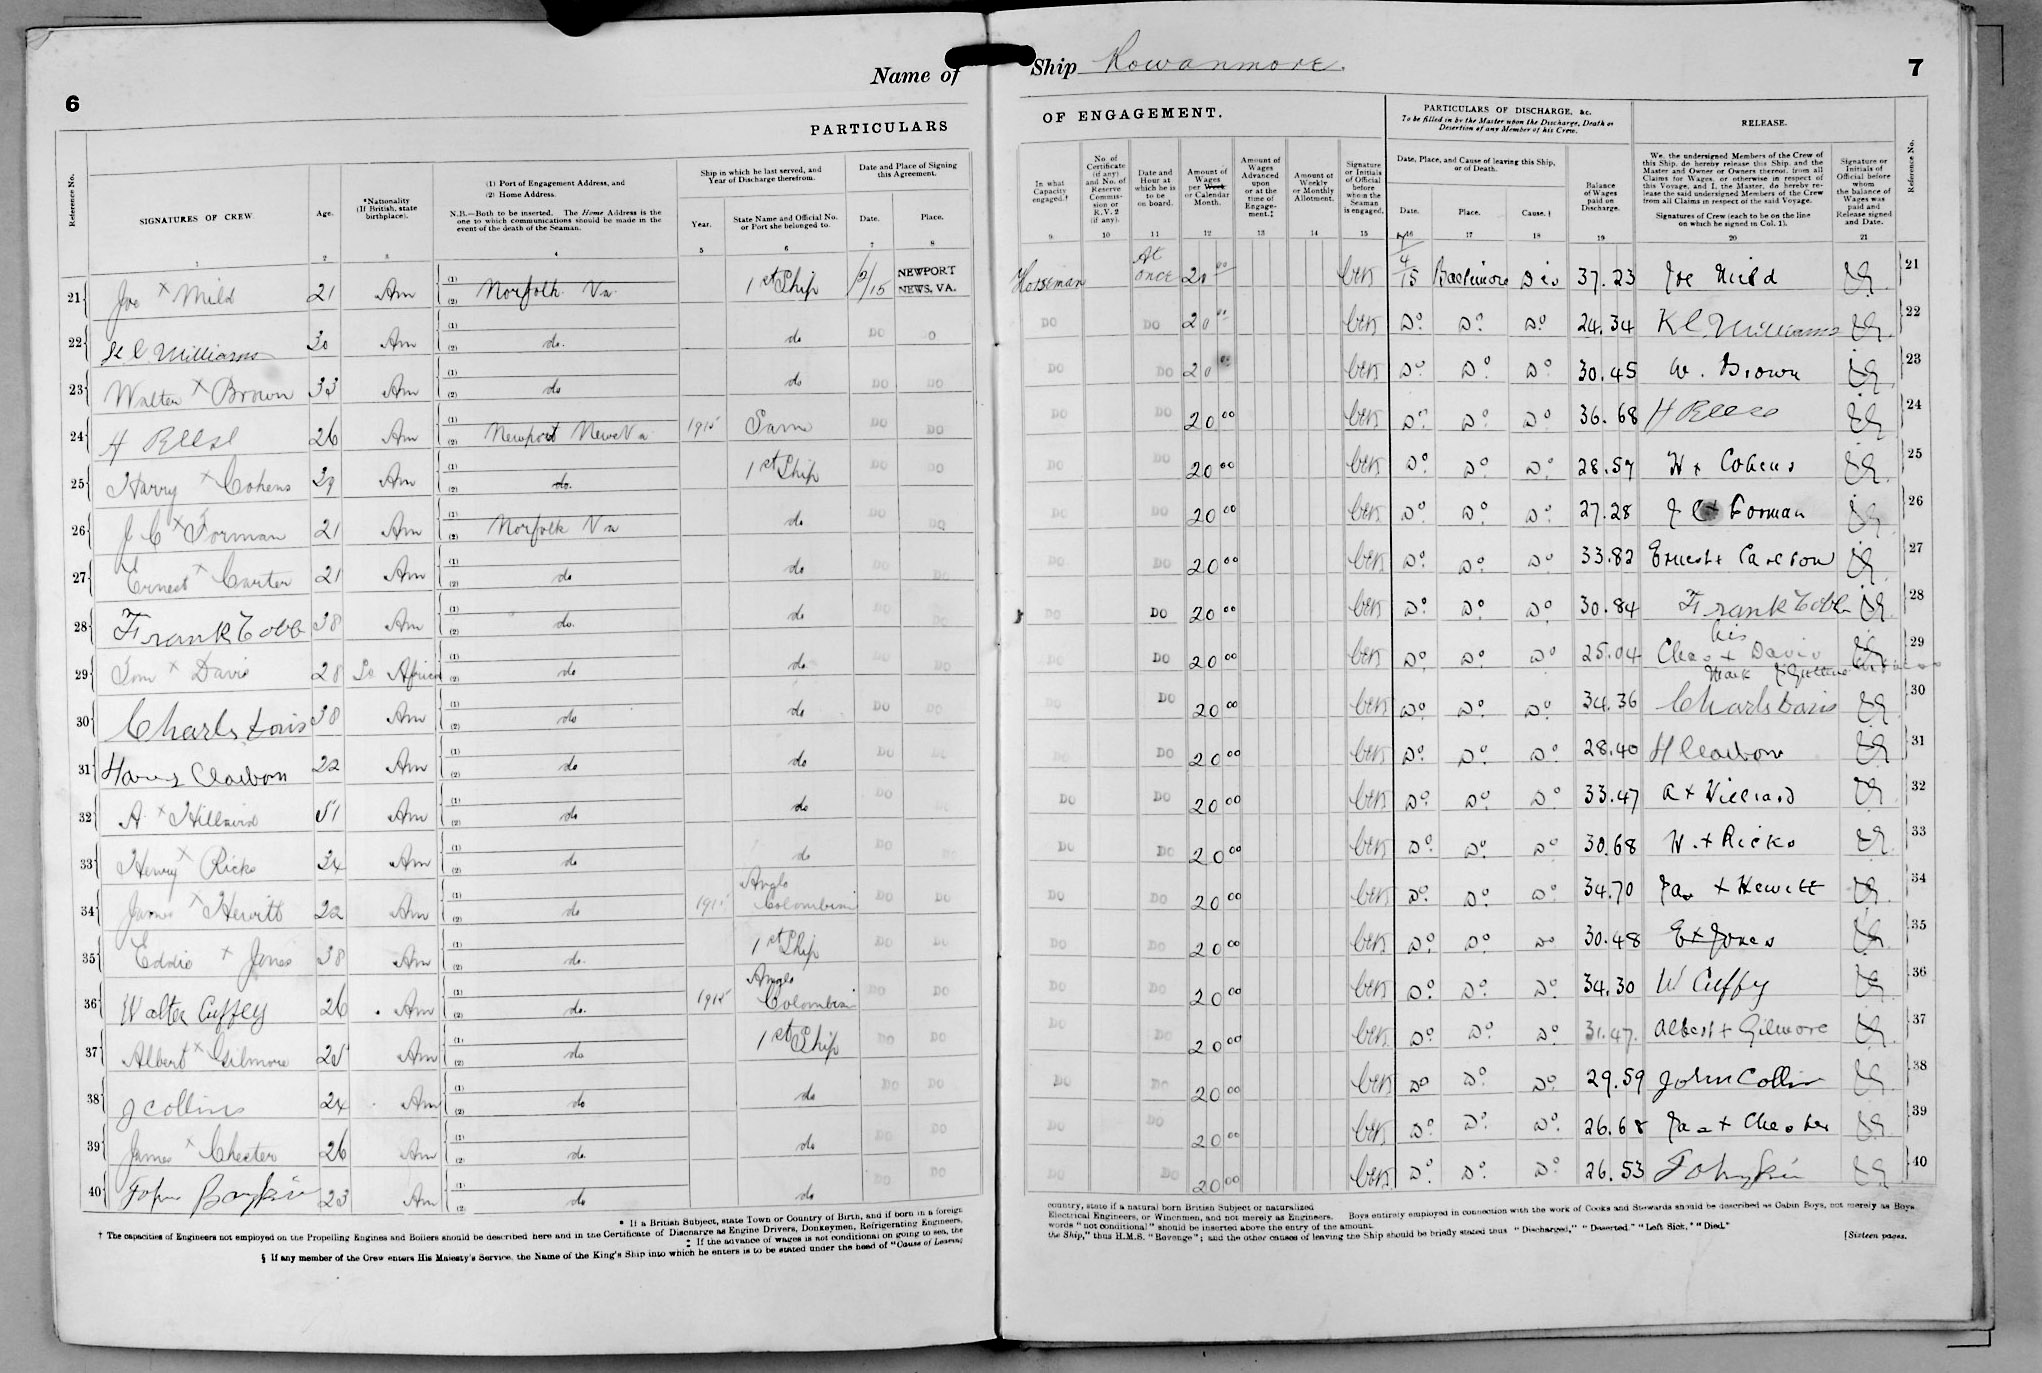 6
Name of
PARTICULARS
Reference No.
SIGNATURES OF CREW
1
Age.
2
*Nationality
(If British, state
birthplace).
3
(1) Port of Engagement Address, and
(2) Home Address.
N.B.—Both to be inserted. The Home Address is the
one to which communications should be made in the
event of the death of the Seaman.
4
Ship in which he last served, and
Year of Discharge therefrom.
Year.
5
State Name and Official No.
or Port she belonged to.
6
Date and Place of Signing
this Agreement.
Date.
7
Place.
8
21 Joe x Mild 21 Am (1) (2) Norfolk Va 1st Ship /15 NEWPORT NEWS, VA.
22 K C Williams 30 Am (1) (2) do. do DO O
23 Walter x Brown 33 Am (1) (2) do do DO DO
24 H Reese 26 Am (1) (2) Newport News Va 1915 Same DO DO
25 Harry x Cohens 29 Am (1) (2) do. 1st Ship DO DO
26 J C x Forman 21 Am (1) (2) Norfolk Va do DO DO
27 Ernest x Carter 21 Am (1) (2) do do DO DO
28 Frank Cobb 38 Am (1) (2) do. do DO DO
29 Tom x Davis 28 So Africa (1) (2) do do. DO DO
30 Charls Davis 38 Am (1) (2) do do DO DO
31 Harry Claibon 22 Am (1) (2) do do DO DO
32 A x Hilliard 51 Am (1) (2) do do DO
33 Henry x Ricks 34 Am (1) (2) do do DO DO
34 James x Hewitt 22 Am (1) (2) do 1915 Anglo Colombian DO DO
35 Eddie x Jones 38 Am (1) (2) do. 1st Ship DO DO
36 Walter Cuffey 26 Am (1) (2) do. 1915 Anglo Colombian DO DO
37 Albert x Gilmore 25 Am (1) (2) do 1st Ship DO DO
38 J Collins 24 Am (1) (2) do do DO DO
39 James x Chester 26 Am (1) (2) do. do DO DO
40 23 Am (1) (2) do do DO DO
* If a British Subject, state Town or Country of Birth, and if born in a foreign
† The capacities of Engineers not employed on the Propelling Engines and Boilers should be described here and in the Certificate of Discharge as Engine Drivers, Donkeymen, Refrigerating Engineers,
‡ If the advance of wages is not conditional on going to sea, the
§ If any member of the Crew enters His Majesty's Service, the Name of the King's Ship into which he enters is to be stated under the head of "Cause of Leaving
Ship Rowanmore.
7
OF ENGAGEMENT.
PARTICULARS OF DISCHARGE, &c.
To be filled in by the Master upon the Discharge, Death or
Desertion of any Member of his Crew.
RELEASE.
In what
Capacity
engaged.†
9.
No. of
Certificate
(if any)
and No. of
Reserve
Commis-
sion or
R.V. 2
(if any).
10
Date and
Hour at
which he is
to be
on board.
11
Amount of
Wages
per Week
or Calendar
Month.
12
Amount of
Wages
Advanced
upon
or at the
time of
Engage-
ment.‡
13
Amount of
Weekly
or Monthly
Allotment.
14
Signature
or Initials
of Official
before
whom the
Seaman
is engaged.
15
Date, Place, and Cause of leaving this Ship,
or of Death.
Date.
16
Place.
17
Cause. §
18
Balance
of Wages
paid on
Discharge.
19
We, the undersigned Members of the Crew of
this Ship, do hereby release this Ship, and the
Master and Owner or Owners thereof, from all
Claims for Wages, or otherwise in respect of
this Voyage, and I, the Master, do hereby re-
lease the said undersigned Members of the Crew
from all Claims in respect of the said Voyage.
Signatures of Crew (each to be on the line
on which he signed in Col. 1).
20
Signature or
Initials of
Official before
whom
the balance of
Wages was
paid and
Release signed
and Date.
21
Reference No.
Horseman At once 20 00 4/15 Baltimore Dis 37.23 Joe Mild 21
DO DO 20 00 Do Do Do 24.34 K C Williams 22
DO DO 20 00 Do Do Do 30.45 W. Brown 23
DO DO 20 00 Do Do Do 36.68 H Reese 24
DO DO 20 00 Do Do Do 28.57 H x Cohens 25
DO DO 20 00 Do Do Do 27.28 J C x Forman 26
DO DO 20 00 Do Do Do 33.82 Ernest x Carlson 27
DO DO 20 00 Do Do Do 30.84 Frank Cobb 28
DO DO 20 00 Do Do Do 25.04 Chas his x mark Davis 29
DO DO 20 00 Do Do Do 34.36 Charls Davis 30
DO DO 20 00 Do Do Do 28.40 H Claibon 31
DO DO 20 00 Do Do Do 33.47 A x Hilliard 32
DO DO 20 00 Do Do Do 30.68 H. x Ricks 33
DO DO 20 00 Do Do Do 34.70 Jas x Hewitt 34
DO DO 20 00 Do Do Do 30.48 E x Jones 35
DO DO 20 00 Do Do Do 34.30 W Cuffy 36
DO DO 20 00 Do Do Do 31.47. Albert x Gilmore 37
DO DO 20 00 Do Do Do 29.59 John Collin 38
DO DO 20 00 Do Do Do 26.68 Jas x Chester 39
DO DO 20 00 Do Do Do 26.53 40
country, state if a natural born British Subject or naturalized
Electrical Engineers, or Winchmen, and not merely as Engineers. Boys entirely employed in connection with the work of Cooks and Stewards should be described as Cabin Boys, not merely as Boys.
words "not conditional" should be inserted above the entry of the amount.
the Ship," thus H.M.S. "Revenge"; and the other causes of leaving the Ship should be briefly stated thus "Discharged," "Deserted," "Left Sick," "Died."
[Sixteen pages.